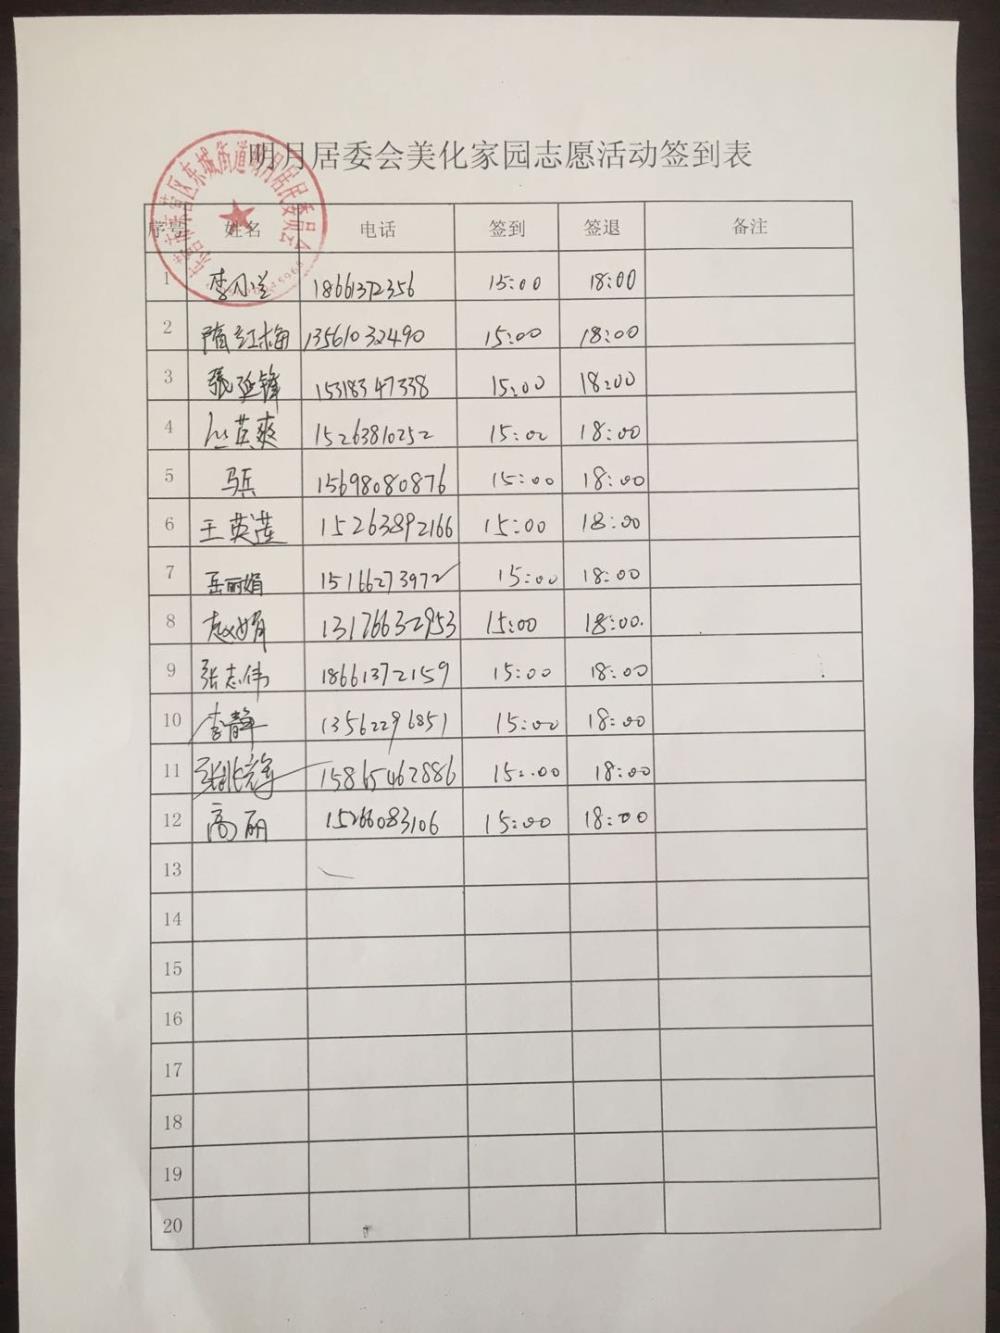 明月居委会美化家园志愿活动签到表
序号 姓名 电话 签到 签退 备注
1 18661372356 15:00 18:00
2 隋红梅 13561032490 15:00 18:00
3 張延锋 15318347338 15:00 18:00
4 丛英爽 15263810252 15:00 18:00
5 15698080876 15:00 18:00
6 王英莲 15263892166 15:00 18:00
7 岳丽娟 15166273972 15:00 18:00
8 赵娟 13176632953 15:00 18:00.
9 张志伟 18661372159 15:00 18:00
10 李静 13562296851 15:00 18:00
11 15865462886 15:00 18:00
12 高丽 15266083106 15:00 18:00
13
14
15
16
17
18
19
20